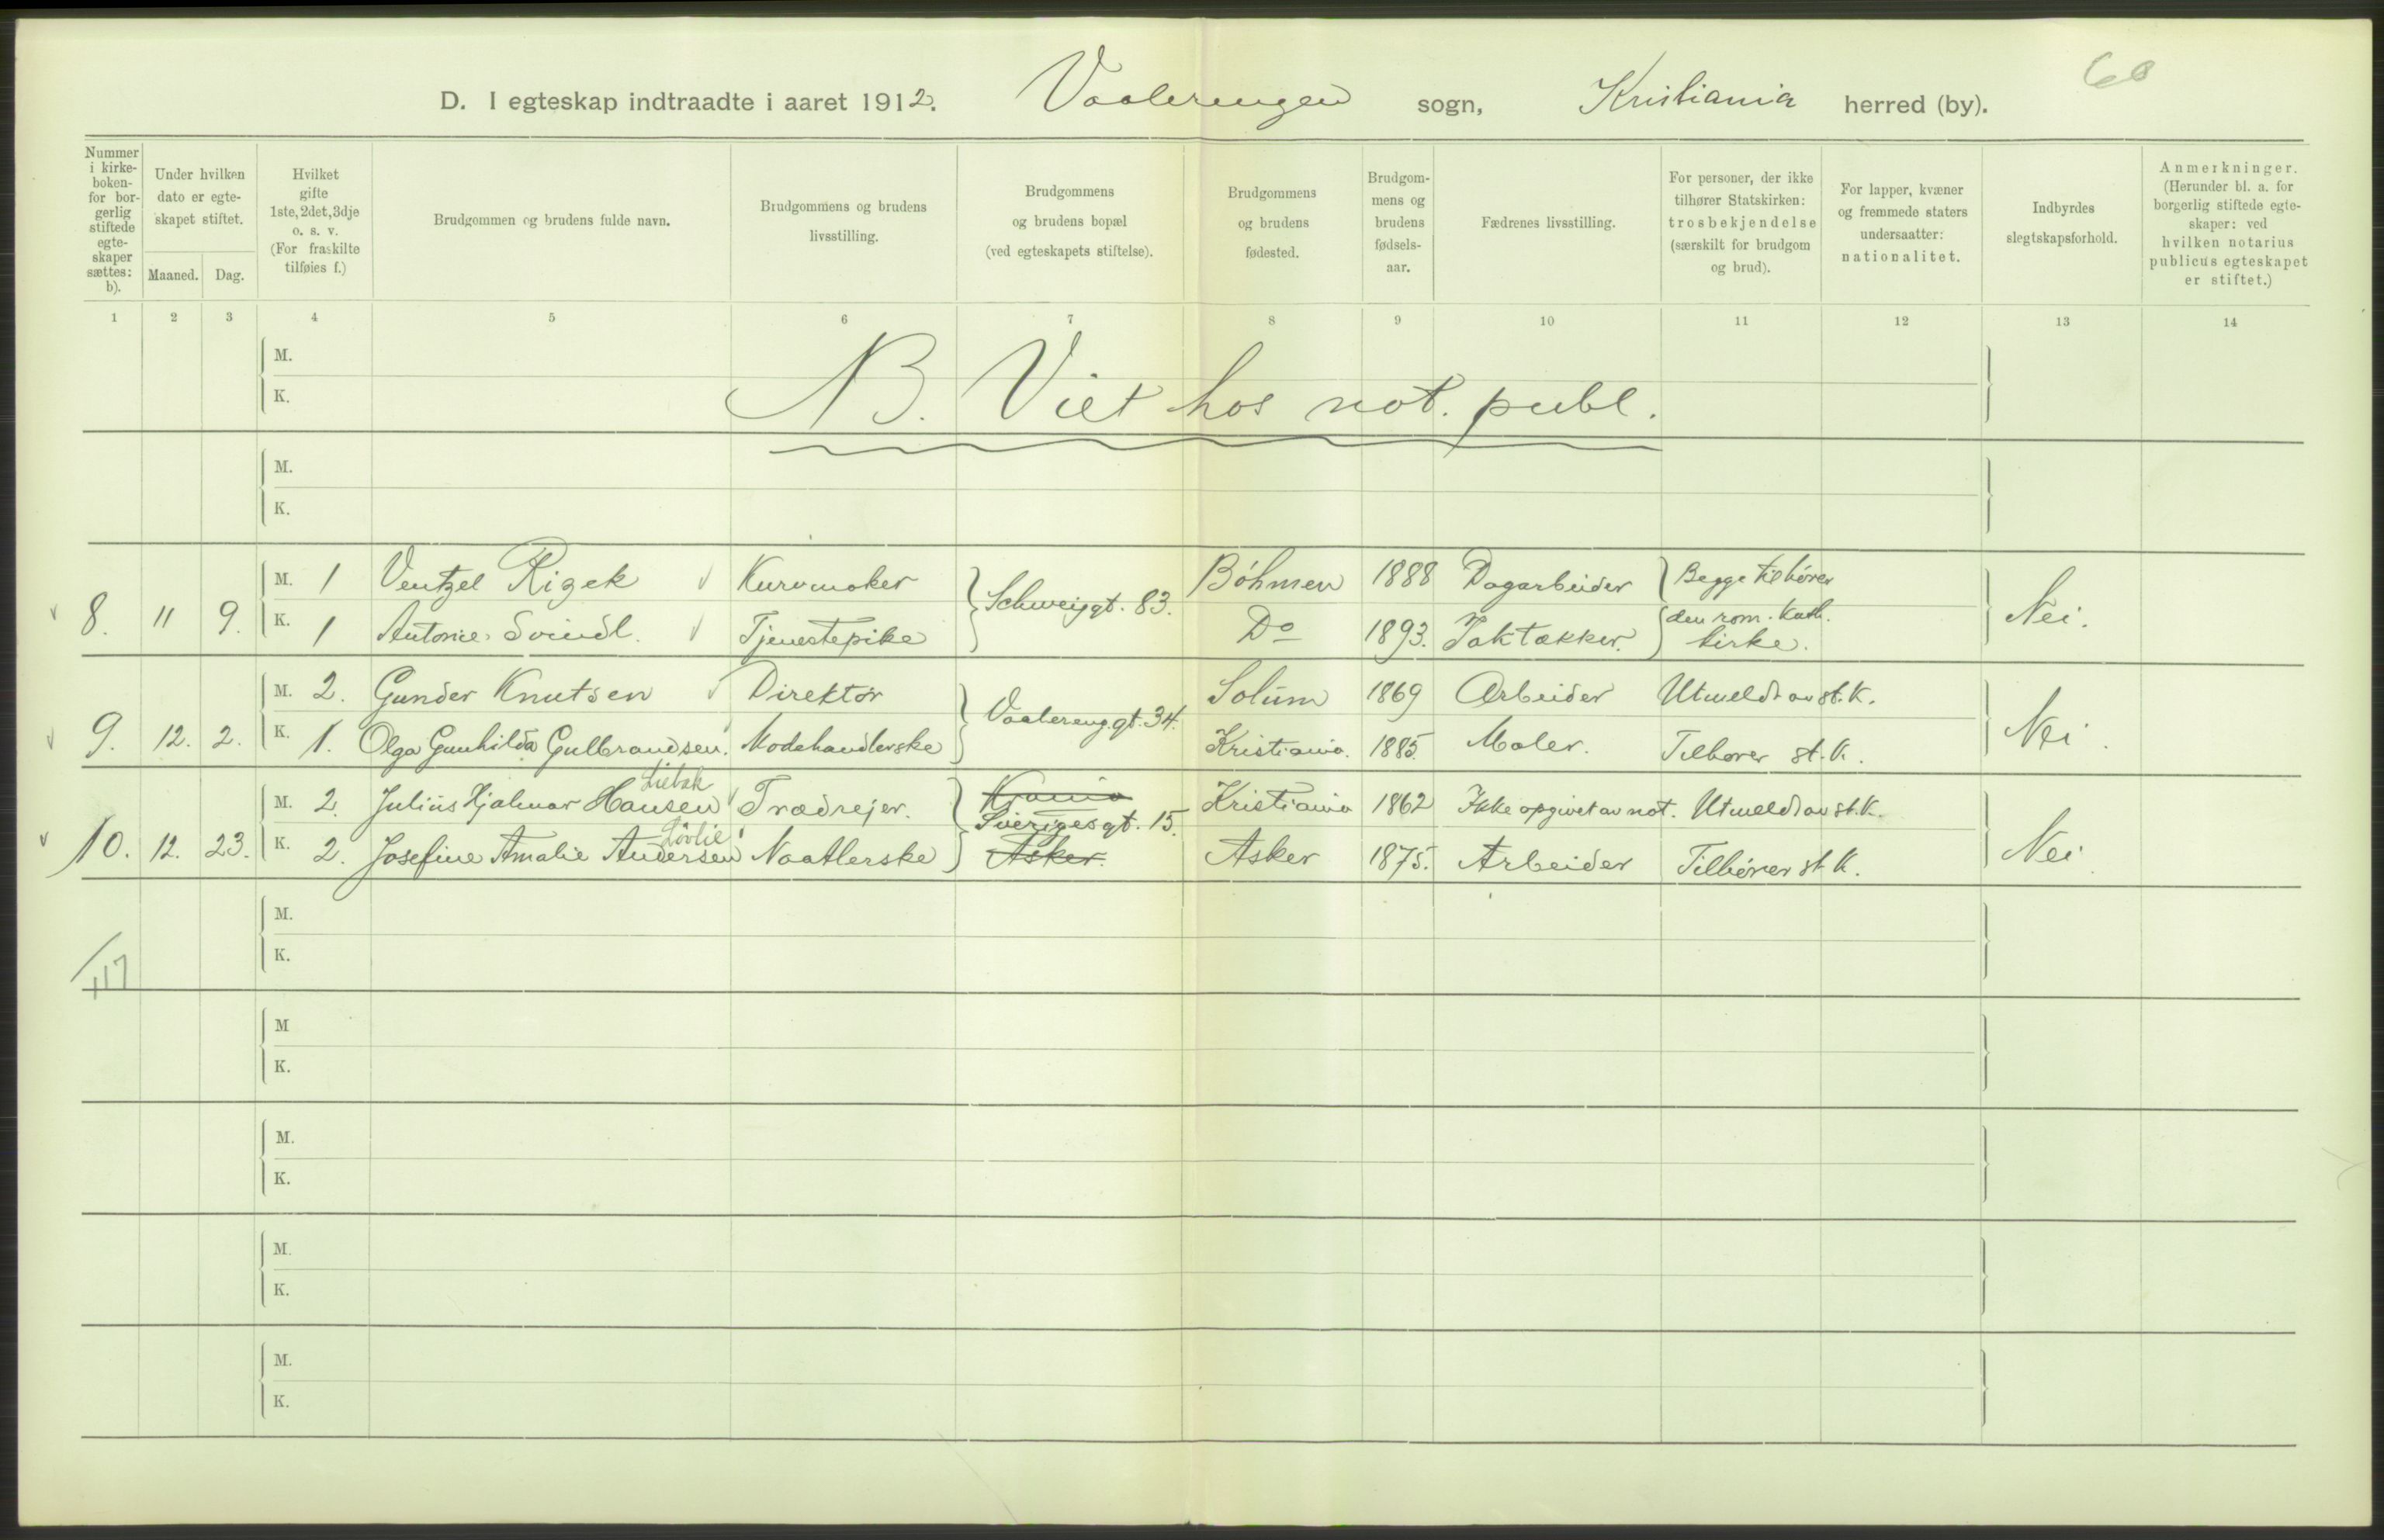 60
D. I egteskap indtraadte i aaret 1912. Vaalerengen sogn, Kristiania herred (by).
Nummer i kirke- boken- for bor- gerlig stiftede egte- skaper sættes: b).
Under hvilken dato er egte- skapet stiftet.
Maaned. Dag.
Hvilket gifte 1ste, 2det, 3dje o. s. v. (For fraskilte tilføies f.)
Brudgommen og brudens fulde navn.
Brudgommens og brudens livsstilling.
Brudgommens og brudens bopæl (ved egteskapets stiftelse).
Brudgommens og brudens fødested.
Brudgom- mens og brudens fødsels- aar.
Fædrenes livsstilling.
For personer, der ikke tilhører Statskirken: trosbekjendelse (særskilt for brudgom og brud).
For lapper, kvæner og fremmede staters undersaatter: nationalitet.
Indbyrdes slegtskapsforhold.
Anmerkninger. (Herunder bl. a. for borgerlig stiftede egte- skaper: ved hvilken notarius publicus egteskapet er stiftet.)
1 2 3 4 5 6 7 8 9 10 11 12 13 14
M.
K.
NB. Viet hos not. publ.
M.
K.
8. 11 9. M. 1 Ventzel Rizek Kurvmaker Schweigt. 83. Bøhmen 1888 Dagarbeider Begge tilhører Nei.
K. 1 Antonie Svindl. Tjenestepike Do 1893. Taktækker. den rom. kath. kirke.
9. 12. 2. M. 2. Gunder Knutsen Direktør Vaalereng.gt. 34. Solum 1869 Arbeider Utmeldt av st. K. Nei.
K. 1. Olga Gunhilda Gulbrandsen. Modehandlerske Kristiania. 1885. Maler. Tilhører st. K.
Lietak
10. 12. 23. M. 2. Julius Hjalmar Hansen Trædrejer. Krania Kristiania 1862 Ikke opgivet av not. Utmeldt av st. K. Nei
Sverigesgt. 15.
Løvlie
K. 2. Josefine Amalie Andersen Naatlerske Asker. Asker 1875. Arbeider Tilhører st. K.
M.
K.
117
M
K.
M.
K.
M.
K.
M.
K.